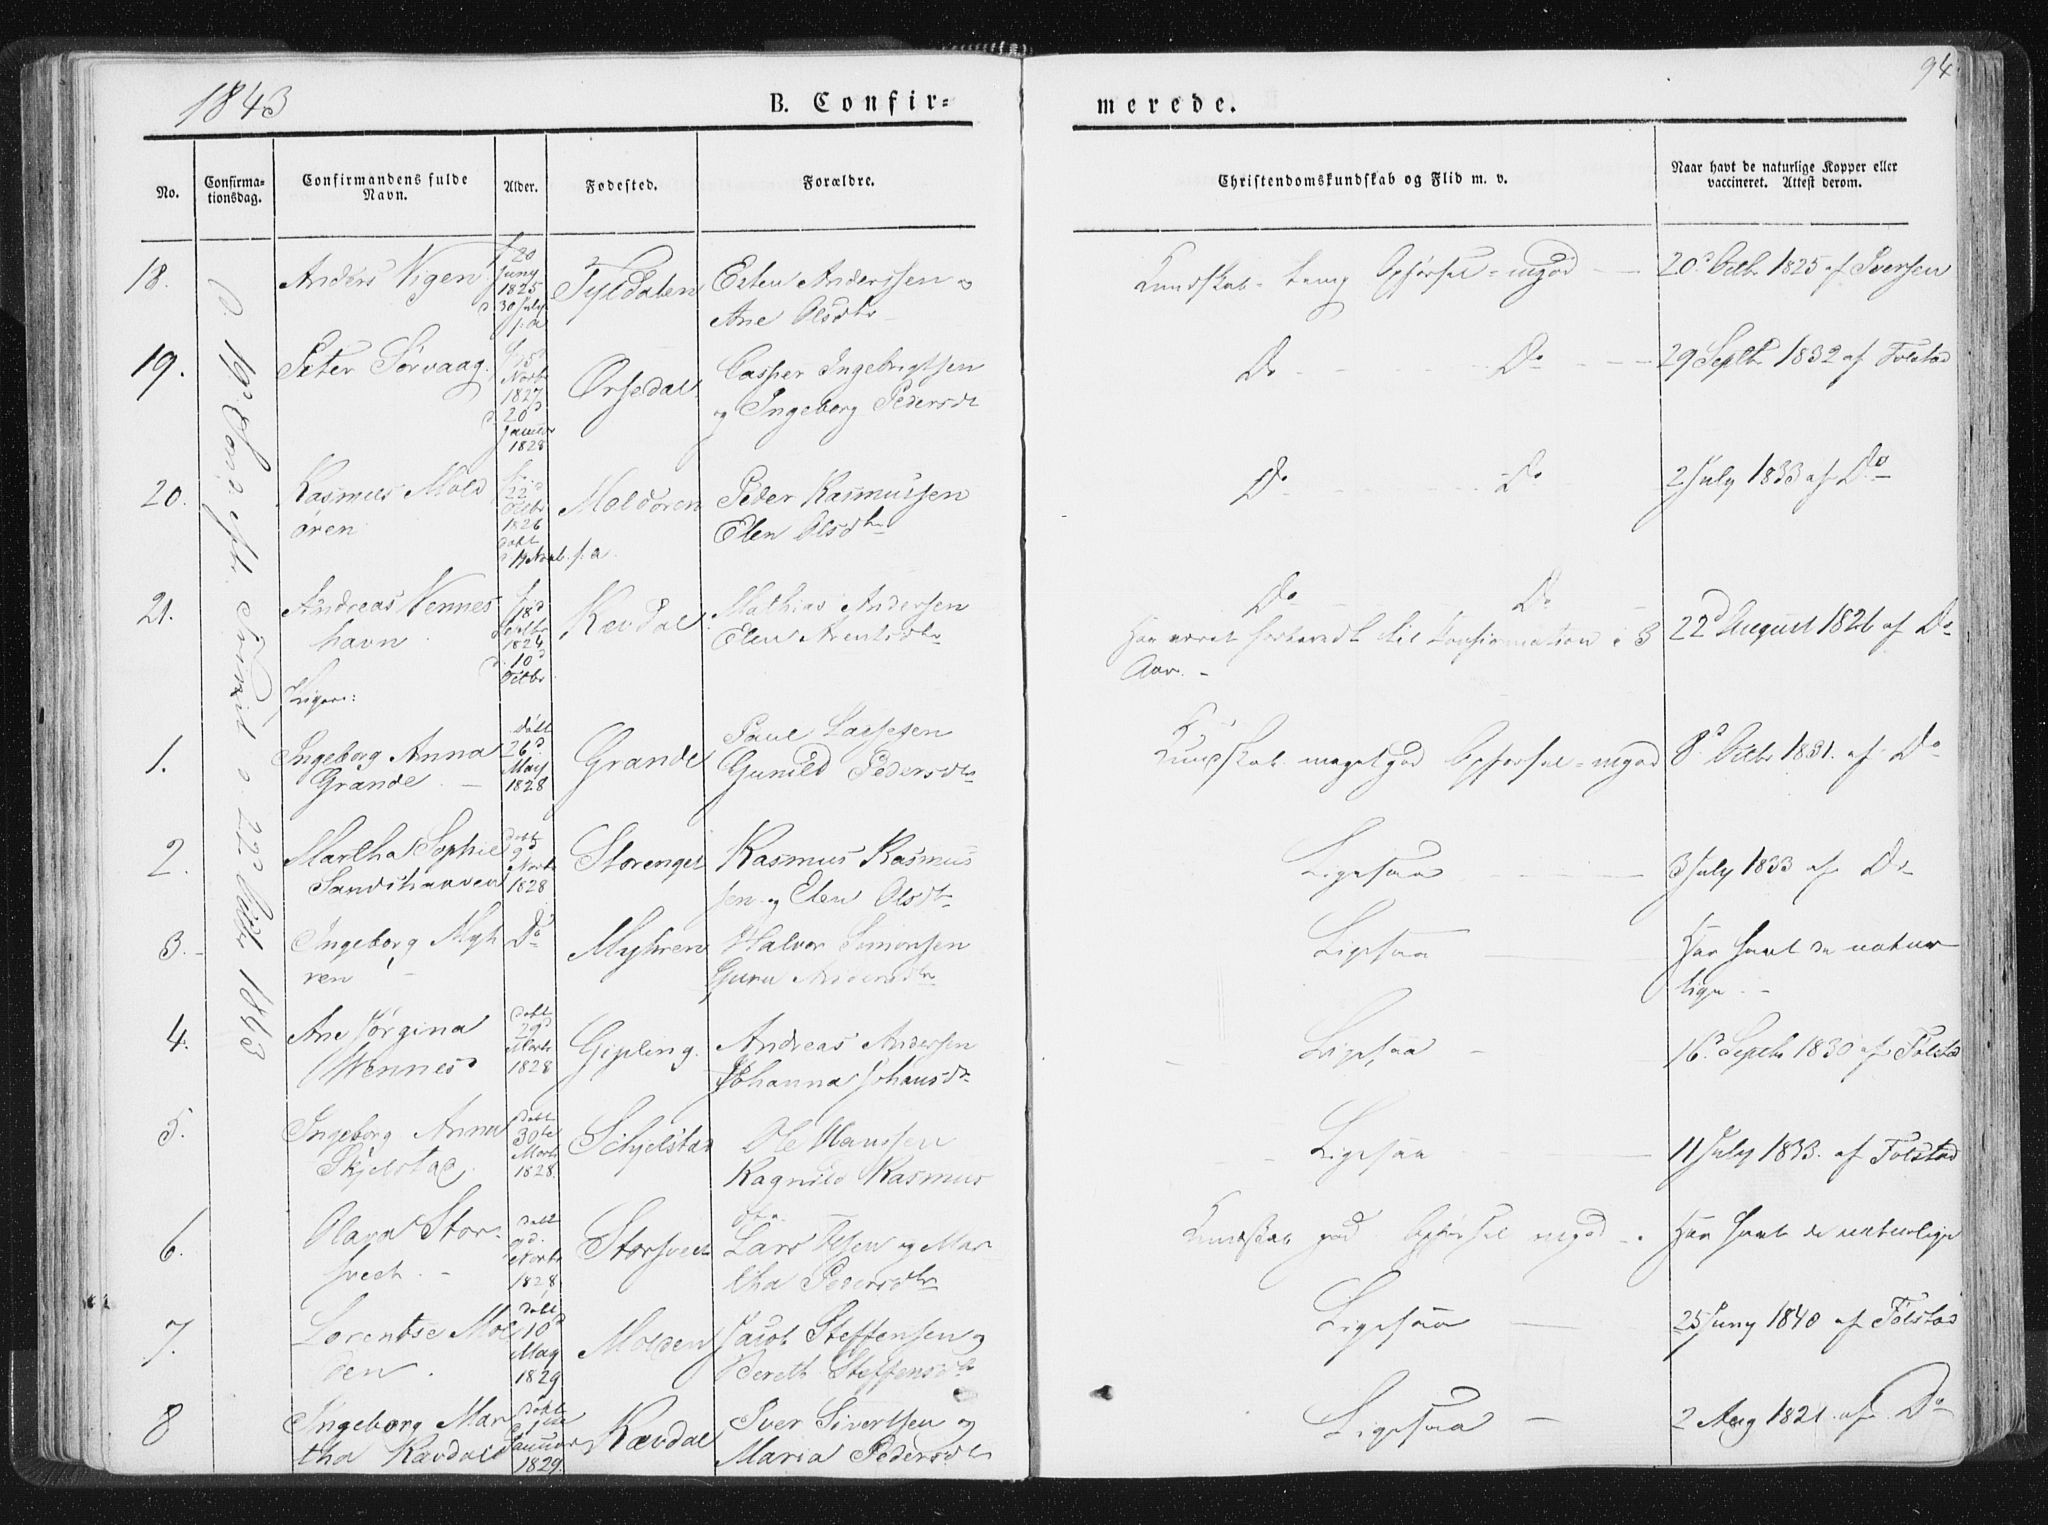 1843
B. Confir=
merede.
94
No.
Confirma-
tionsdag.
Confirmandens fulde
Navn.
Alder.
Fødested.
Forældre.
Christendomskundskab og Flid m. v.
Naar havt de naturlige Kopper eller
vaccineret. Attest derom.
18.
Anders Vigen
20
Juny
1825
30 July
Tyldalen
Esten Anderssen og
Ane Olsdtr
Kundskab - temg Opførsel - mgod
20d Octbr 1825 af Iversen
19.
Peter Sørvaag.
15d
Novbr
1827
d. 20d
Januar
1828
Ørsedal
Casper Ingebrigtsen
og Ingeborg Pedersdt
Do
Do
29 Septbr 1832 af Folstad
20.
Rasmus Mold
øren
22d
Octbr
1826
døbt
Novb. s. a.
Moldøren
Peder Rasmussen
Elen Olsdtr
Do
Do
2 July 1833 af Do
21.
Andreas Vennes
havn
18d
Septbr
1824
d. 10d
Octbr
Rævdal
Mathias Andersen
Elen Arentsdtr
Do
Do
Har været forberedt til Confirmation i 3
Aar.
22d August 1826 af Do
Piger:
1.
Ingeborg Anna
Grande.
døbt
26d
May
1828
Grande
Paul Lassesen
Gunild Pedersdtr
Kundskab meget god Opførsel - mgod
8d Octbr 1831. af Do
2.
Martha Sophie
Sandstranden
døbt
9d
Novbr
1828
Storenget
Rasmus Rasmus
sen og Elen Olsdtr
Ligesaa
3 July 1833 af Do
3.
Ingeborg Myh
ren
Do
Myhren
Halvor Simonsen
Guru Andersdtr
Ligesaa
Har havt de natur
lige
4.
Ane Jørgina
Wennes
døbt
29d
1828
Gipling.
Andreas Andersen
Johanna Johansdtr
Ligesaa
16d Septbr 1830 af Folstad
5.
Ingeborg Anna
Skjelstad.
døbt
30te
1828
Schjelstad
Ole Hanssen
Ragnild Rasmus
dtr
Ligesaa
11 July 1833. af Folstad
6.
Olava Stor-
svech.
døbt
9d.
1828
Storsvech
Lars og Mar
tha Pedersdtr
Kundskab god Opførsel mgod
Har havt de naturlige
7.
Lorentse Mol
den.
døbt
10d
May
1829
Molden
Jacob Steffensen og
Bereth Steffensdtr
Ligesaa
25 Juny 1840 af Folstad
8
Ingeborg Mar
tha Ravdal
døbt
Januar
1829
Rævdal
Iver Sivertsen og
Maria Pedersdtr
Ligesaa
2 Aug 1821. af Do
d. 19de Sønd. eftr. Trinit d 22d Octbr 1843